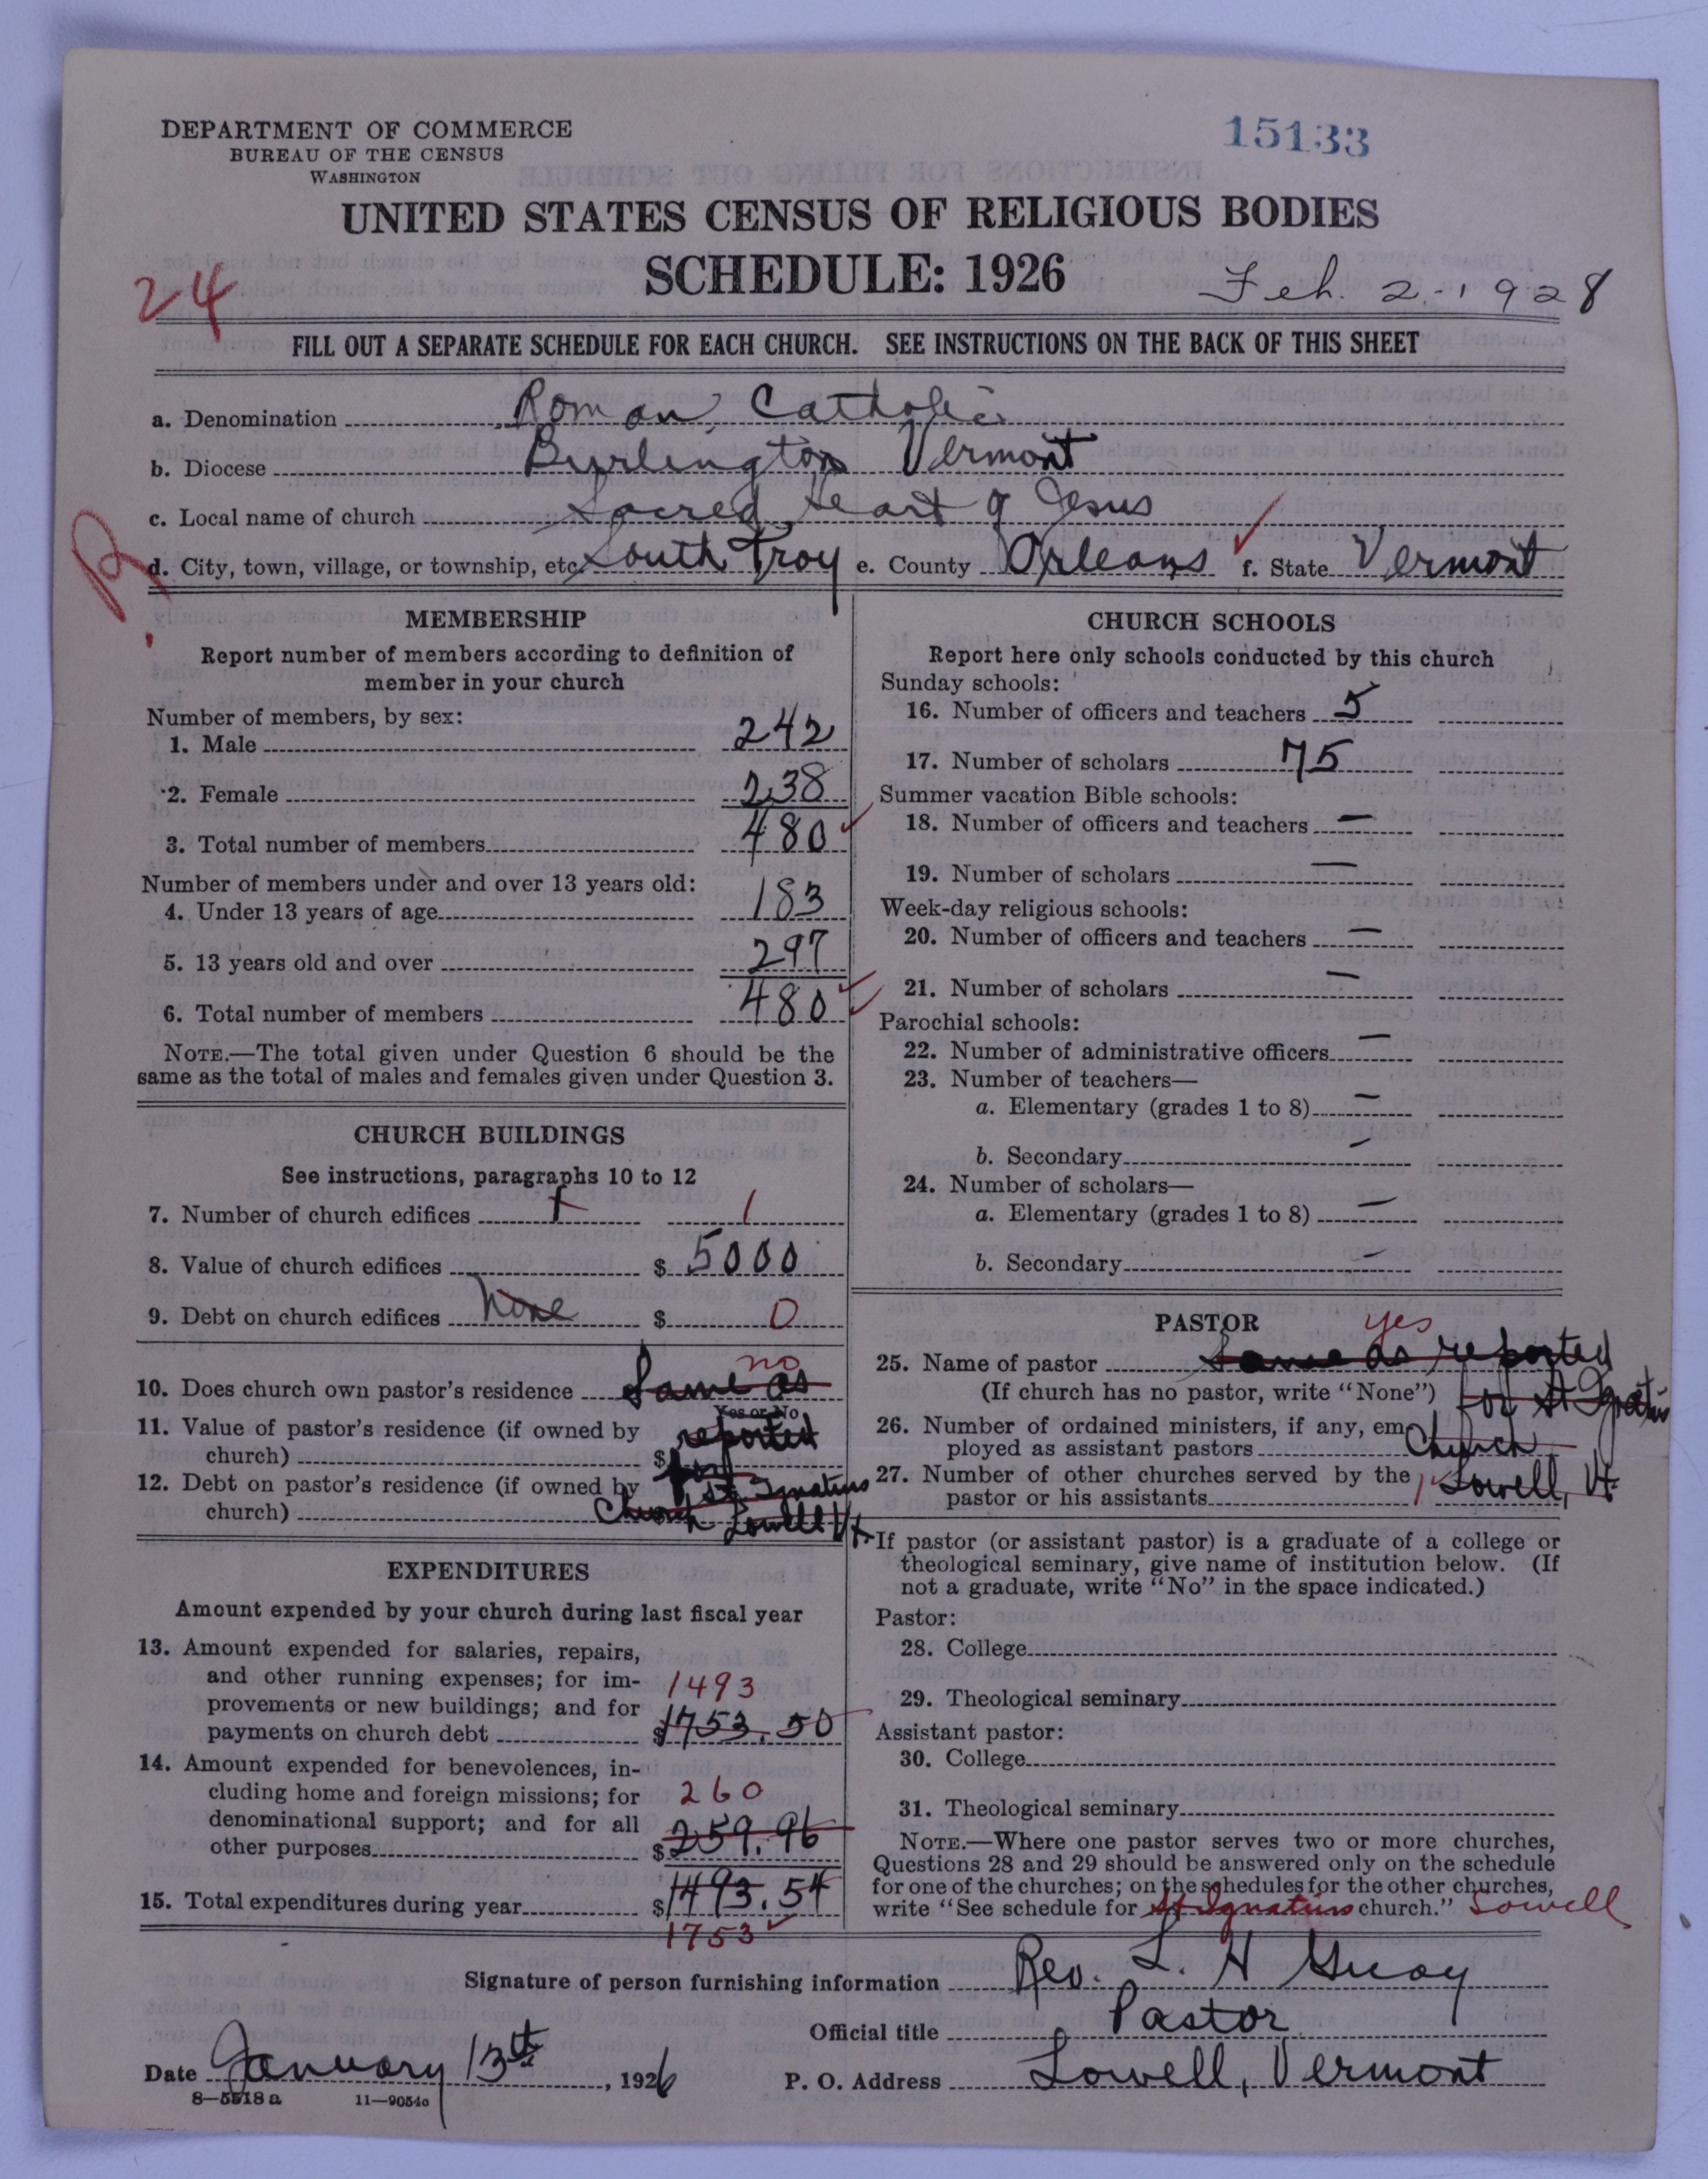 DEPARTMENT OF COMMERCE
BUREAU OF THE CENSUS
WASHINGTON
15133
UNITED STATES CENSUS OF RELIGIOUS BODIES
SCHEDULE: 1926
24
Feb. 2, 1928
FILL OUT A SEPARATE SCHEDULE FOR EACH CHURCH. SEE INSTRUCTIONS ON THE BACK OF THIS SHEET
a. Denomination Roman Catholic
b. Diocese Burlington Vermont
c. Local name of church Sacred Heart of Jesus
d. City, town, village, or township, etc. South Troy e. County Orleans f. State Vermont
MEMBERSHIP
Report number of members according to definition of
member in your church
Number of members, by sex:
1. Male 242
2. Female 238
3. Total number of members 480
Number of members under and over 13 years old:
4. Under 13 years of age 183
5. 13 years old and over 297
6. Total number of members 480
NOTE.—The total given under Question 6 should be the
same as the total of males and females given under Question 3.
CHURCH BUILDINGS
See instructions, paragraphs 10 to 12
7. Number of church edifices 1 1
8. Value of church edifices $ 5000
9. Debt on church edifices None $ 0
10. Does church own pastor's residence Same as no
Yes or No
11. Value of pastor's residence (if owned by reported
church) $ for
12. Debt on pastor's residence (if owned by St Ignatius
church) $ Church Lowell Vt
EXPENDITURES
Amount expended by your church during last fiscal year
13. Amount expended for salaries, repairs,
and other running expenses; for im-
provements or new buildings; and for 1493
payments on church debt $ 1753.50
14. Amount expended for benevolences, in-
cluding home and foreign missions; for 260
denominational support; and for all
other purposes $ 259.96
15. Total expenditures during year $ 1493.54
1753
CHURCH SCHOOLS
Report here only schools conducted by this church
Sunday schools:
16. Number of officers and teachers 5
17. Number of scholars 75
Summer vacation Bible schools:
18. Number of officers and teachers —
19. Number of scholars —
Week-day religious schools:
20. Number of officers and teachers —
21. Number of scholars —
Parochial schools:
22. Number of administrative officers —
23. Number of teachers—
a. Elementary (grades 1 to 8) —
b. Secondary —
24. Number of scholars—
a. Elementary (grades 1 to 8) —
b. Secondary —
PASTOR yes
25. Name of pastor Same as reported
(If church has no pastor, write "None") for St Ignatius
26. Number of ordained ministers, if any, em-
ployed as assistant pastors Church
27. Number of other churches served by the 1 Lowell, Vt
pastor or his assistants
If pastor (or assistant pastor) is a graduate of a college or
theological seminary, give name of institution below. (If
not a graduate, write "No" in the space indicated.)
Pastor:
28. College
29. Theological seminary
Assistant pastor:
30. College
31. Theological seminary
NOTE.—Where one pastor serves two or more churches,
Questions 28 and 29 should be answered only on the schedule
for one of the churches; on the schedules for the other churches,
write "See schedule for St Ignatius church." Lowell
Signature of person furnishing information Rev. L. H Guay
Official title Pastor
Date January 13th, 1926
P. O. Address Lowell, Vermont
8—5518 a 11—9054a